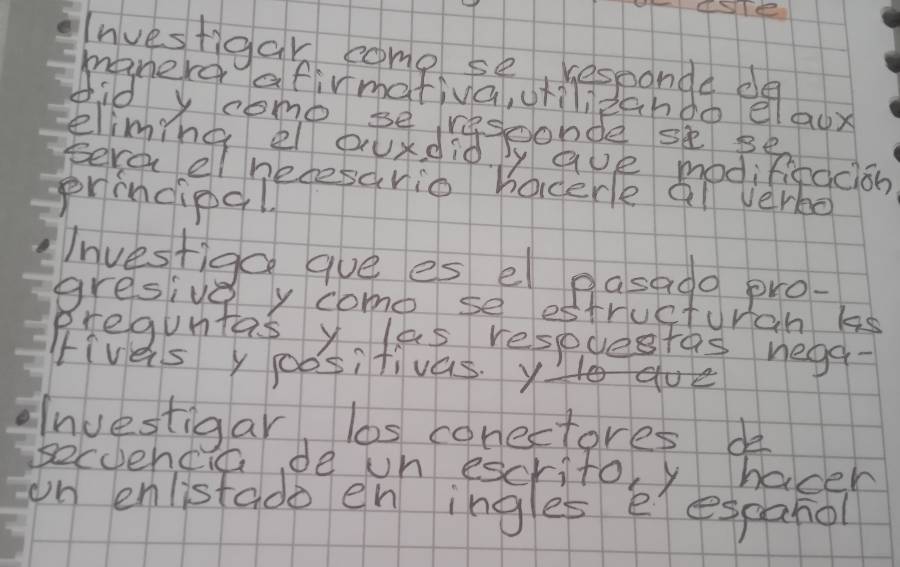 este
• Investigar como se responde de
manera afirmativa, utilizando el aux
did y como se responde si se
elimina el aux.did y que modificación
sera el necesario hacerle al verbo
principal.
• Investiga que es el pasado pro-
gresivo y como se estructuran las
preguntas y las respuestas nega-
tivas y positivas. y lo que
• Investigar los conectores de
secuencia de un escrito, y hacer
un enlistado en ingles e español